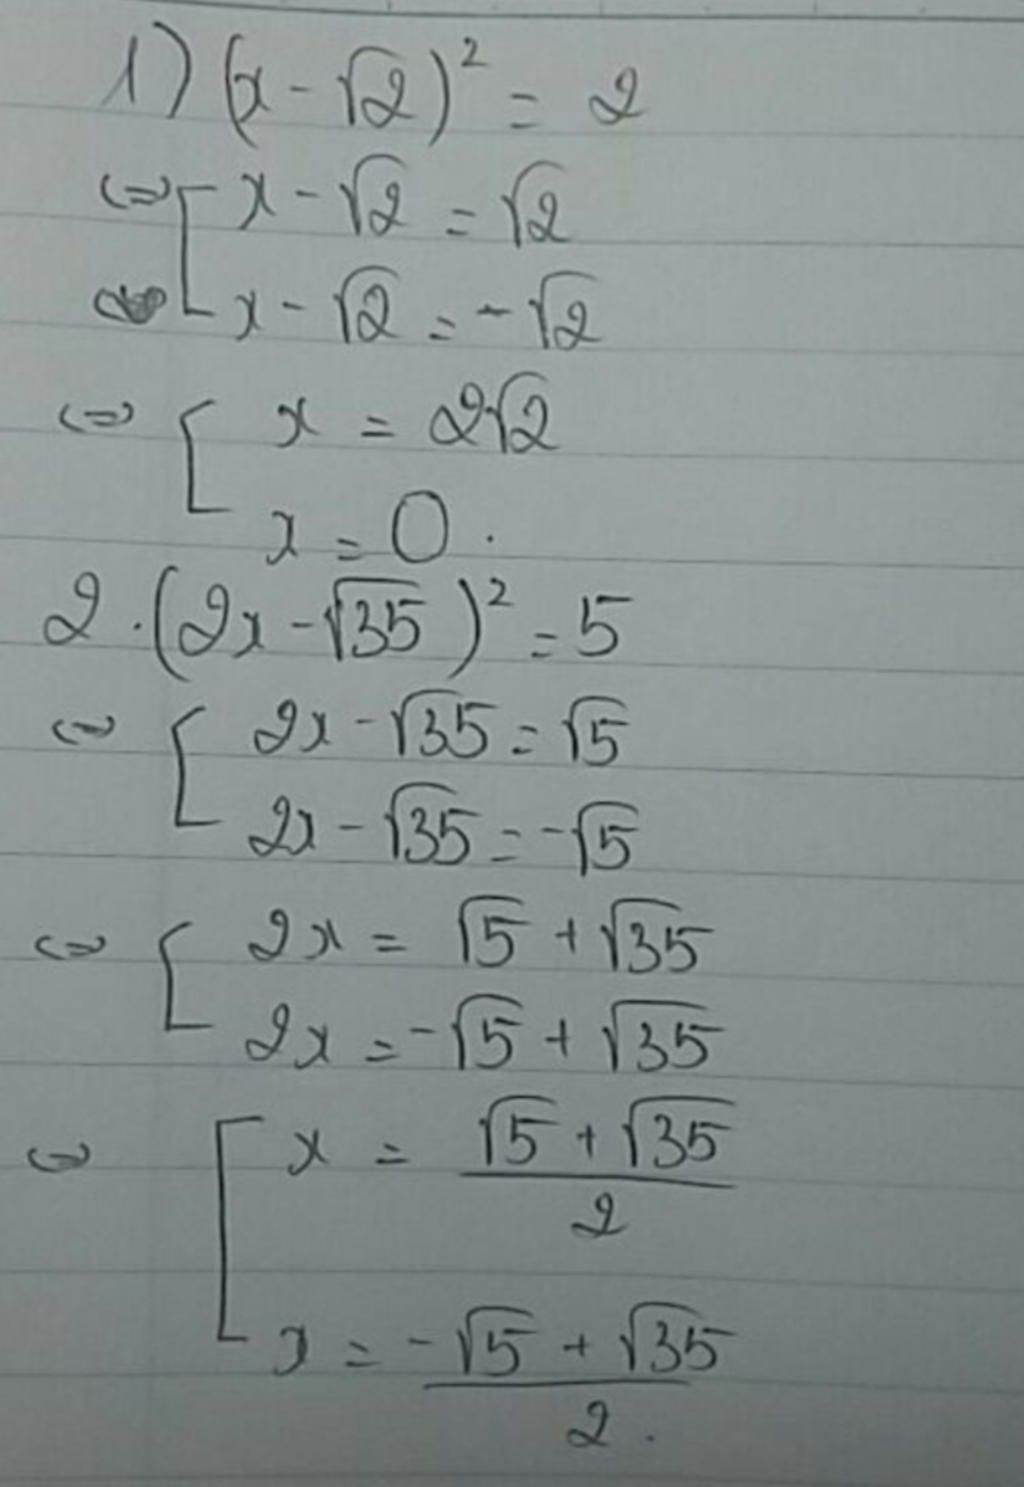 1) (x - √2)² = 2
⇔ [ x - √2 = √2
x - √2 = -√2
⇔ [ x = 2√2
x = 0.
2. (2x - √35)² = 5
⇔ [ 2x - √35 = √5
2x - √35 = -√5
⇔ [ 2x = √5 + √35
2x = -√5 + √35
⇔ [ x = (√5 + √35)/2
x = (-√5 + √35)/2.